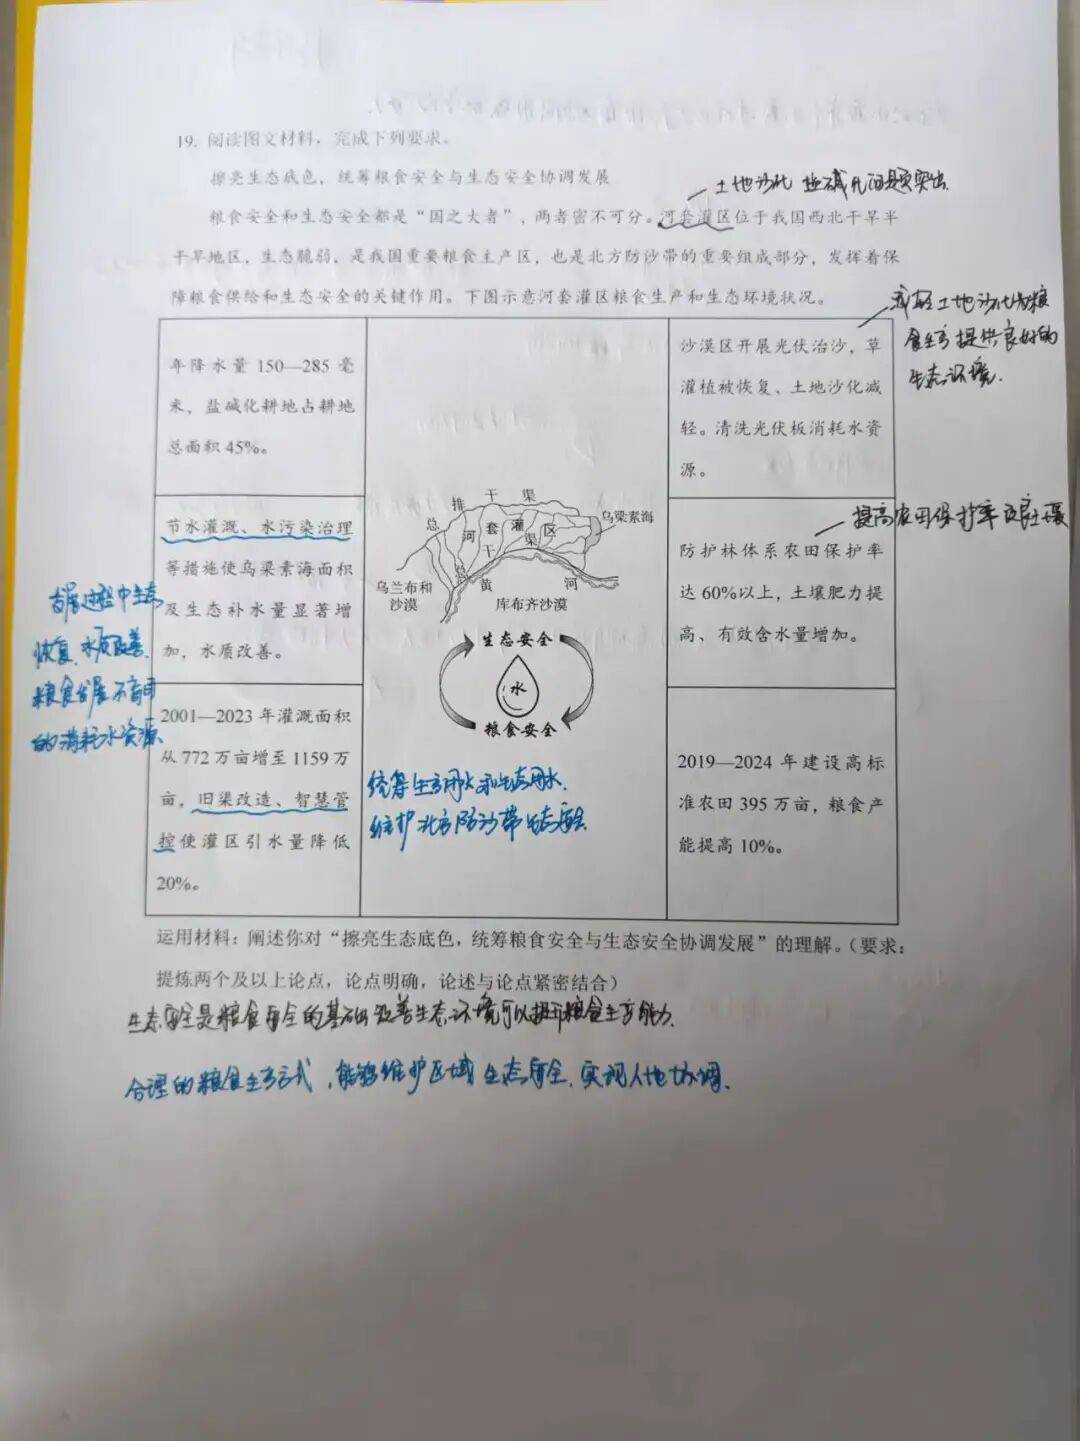 19. 阅读图文材料，完成下列要求。
擦亮生态底色，统筹粮食安全与生态安全协调发展
土地沙化 盐碱化问题突出.
粮食安全和生态安全都是“国之大者”，两者密不可分。河套灌区位于我国西北干旱半
干旱地区，生态脆弱，是我国重要粮食主产区，也是北方防沙带的重要组成部分，发挥着保
障粮食供给和生态安全的关键作用。下图示意河套灌区粮食生产和生态环境状况。
减轻土地沙化为粮
食生产提供良好的
生态环境.
年降水量 150—285 毫
米，盐碱化耕地占耕地
总面积 45%。
节水灌溉、水污染治理
等措施使乌梁素海面积
及生态补水量显著增
加，水质改善。
发展过程中生态
恢复、水质改善.
粮食发展不盲目
的消耗水资源
2001—2023 年灌溉面积
从 772 万亩增至 1159 万
亩，旧渠改造、智慧管
控使灌区引水量降低
20%。
总排干渠
河套灌区
总干渠
乌梁素海
乌兰布和
沙漠
黄河
库布齐沙漠
生态安全
水
粮食安全
统筹生产用水和生态用水.
维护北方防沙带生态安全
沙漠区开展光伏治沙，草
灌植被恢复、土地沙化减
轻。清洗光伏板消耗水资
源。
提高农田保护率 改良土壤
防护林体系农田保护率
达 60%以上，土壤肥力提
高、有效含水量增加。
2019—2024 年建设高标
准农田 395 万亩，粮食产
能提高 10%。
运用材料：阐述你对“擦亮生态底色，统筹粮食安全与生态安全协调发展”的理解。（要求：
提炼两个及以上论点，论点明确，论述与论点紧密结合）
生态安全是粮食安全的基础 改善生态环境可以提升粮食生产能力.
合理的粮食生产方式，能够维护区域生态安全.实现人地协调.